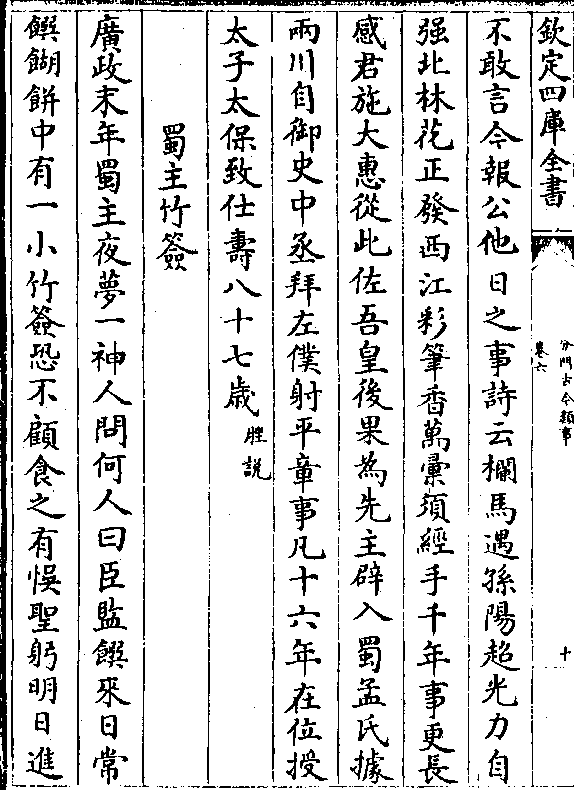 欽定四庫全書
分門古今類事
卷六
十
不敢言今報公他日之事詩云欄馬遇孫陽超光力自
强北林花正發西江彩筆香萬彚須經手千年事更長
感君施大惠從此佐吾皇後果為先主辟入蜀孟氏據
兩川自御史中丞拜左僕射平章事凡十六年在位授
太子太保致仕壽八十七歲 脞說
蜀主竹簽
廣政末年蜀主夜夢一神人問何人曰臣監饌來日常
饌餬餅中有一小竹簽恐不顧食之有悞聖躬明日進